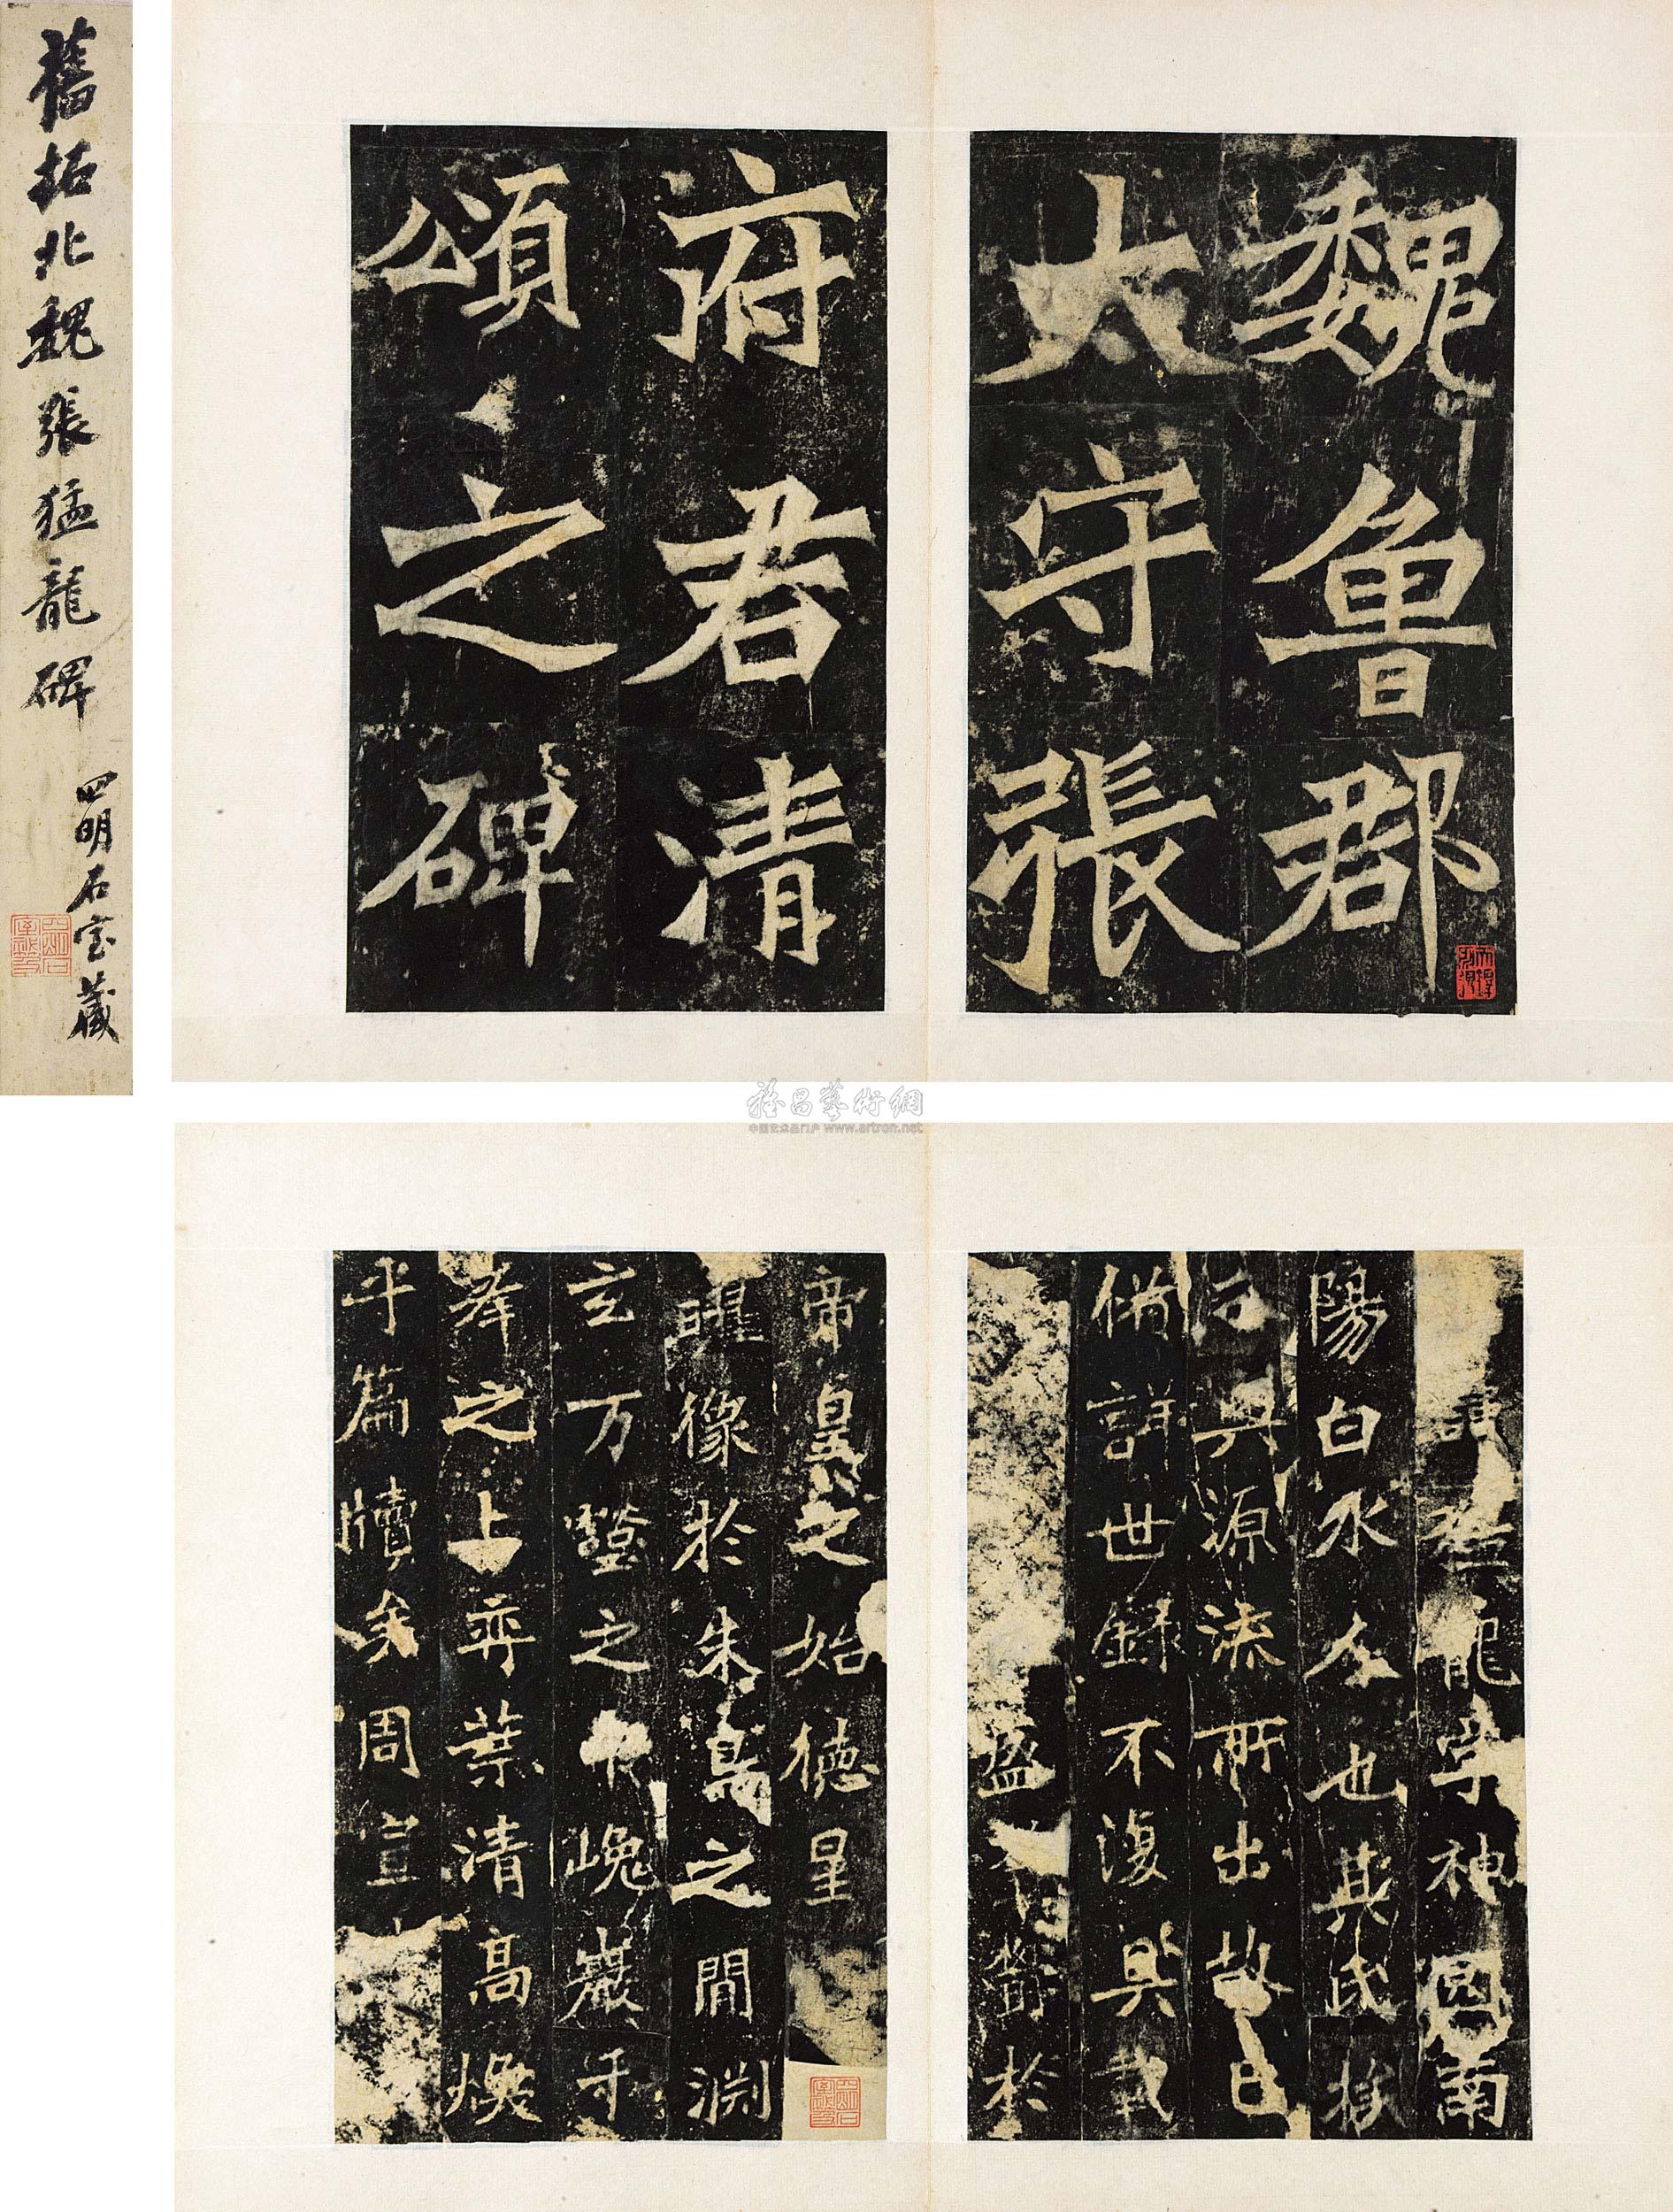 舊拓北魏張猛龍碑
四明石室藏
魏魯郡
太守張
府君清
頌之碑
雅昌藝術網
中国艺术品门户 www.artron.net
諱猛龍字神囧南
陽白水人也其氏族
分興源流所出故已
備詳世錄不復具載
盛 蕳於
帝皇之始德星
曜像於朱鳥之間淵
玄万壑之中巉巖千
峯之上弈葉清高煥
乎篇牘矣周宣